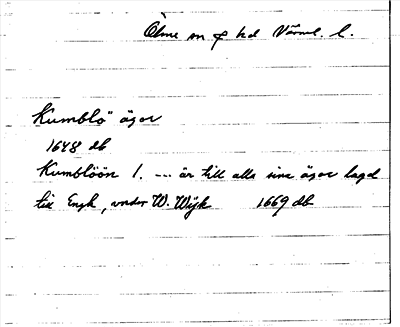 Ölme sn o hd Värml. l.
Kumblö ägor
1648 db
Kumblöön 1. --- är till alla sine ägor lagd
till Engh, under W. Wijk 1669 db